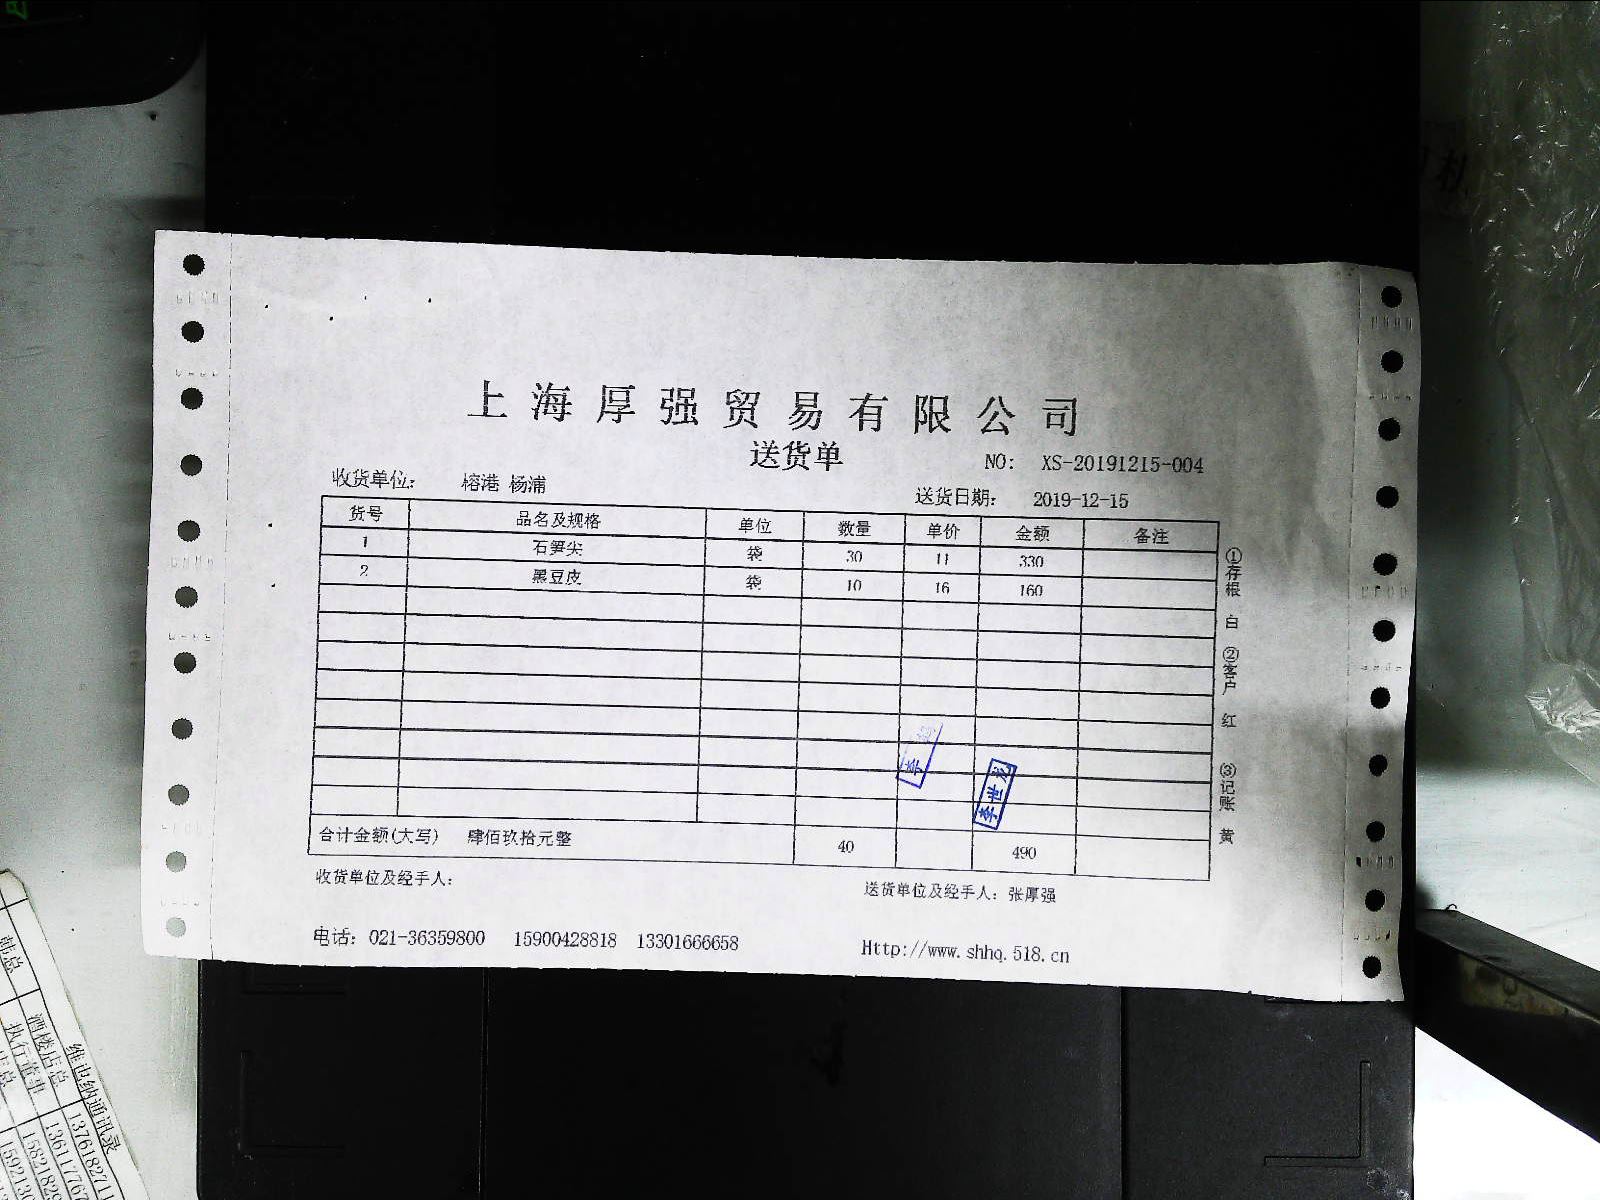 上海厚强贸易有限公司
送货单
NO: XS-20191215-004
收货单位: 榕港 杨浦
送货日期: 2019-12-15
货号 品名及规格 单位 数量 单价 金额 备注
1 石笋尖 袋 30 11 330
2 黑豆皮 袋 10 16 160
合计金额(大写) 肆佰玖拾元整 40 490
收货单位及经手人:
送货单位及经手人: 张厚强
电话: 021-36359800 15900428818 13301666658
Http://www.shhq.518.cn
①存根 白 ②客户 红 ③记账 黄
李世龙
李
维也纳通讯录
酒楼店总
执行董事
韩总